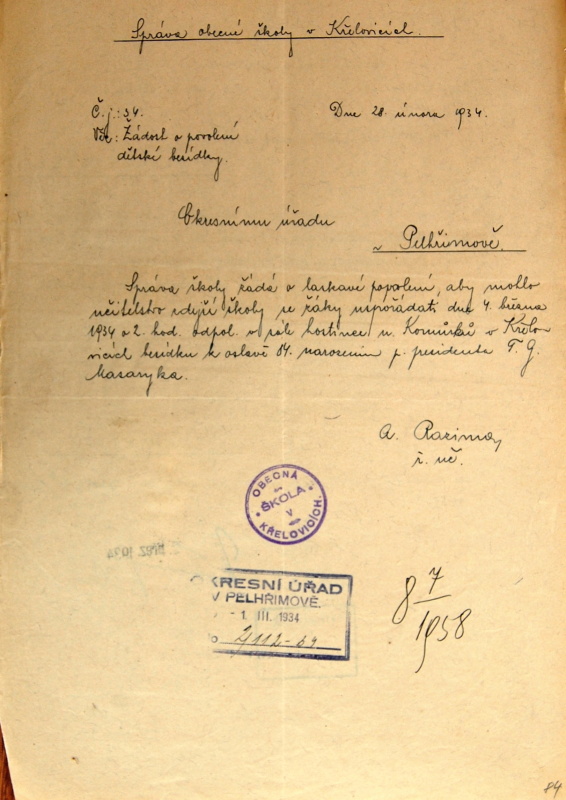 Správa obecné školy v Křelovicích.
Č. j.: 34.
Dne 28. února 1934.
Věc: Žádost o povolení
dětské besídky.
Okresnímu úřadu
v Pelhřimově.
Správa školy žádá o laskavé povolení, aby mohlo
učitelstvo zdejší školy se žáky uspořádati dne 4. března
1934 o 2. hod. odpol. v sále hostince u Komínků v Křelo
vicích besídku k oslavě 84. narozenin p. presidenta T. G.
Masaryka.
A. Razima
ř. uč.
OBECNÁ
ŠKOLA
V
KŘELOVICÍCH.
KRESNÍ ÚŘAD
V PELHŘIMOVĚ.
- 1. III. 1934
8 7
1958
84